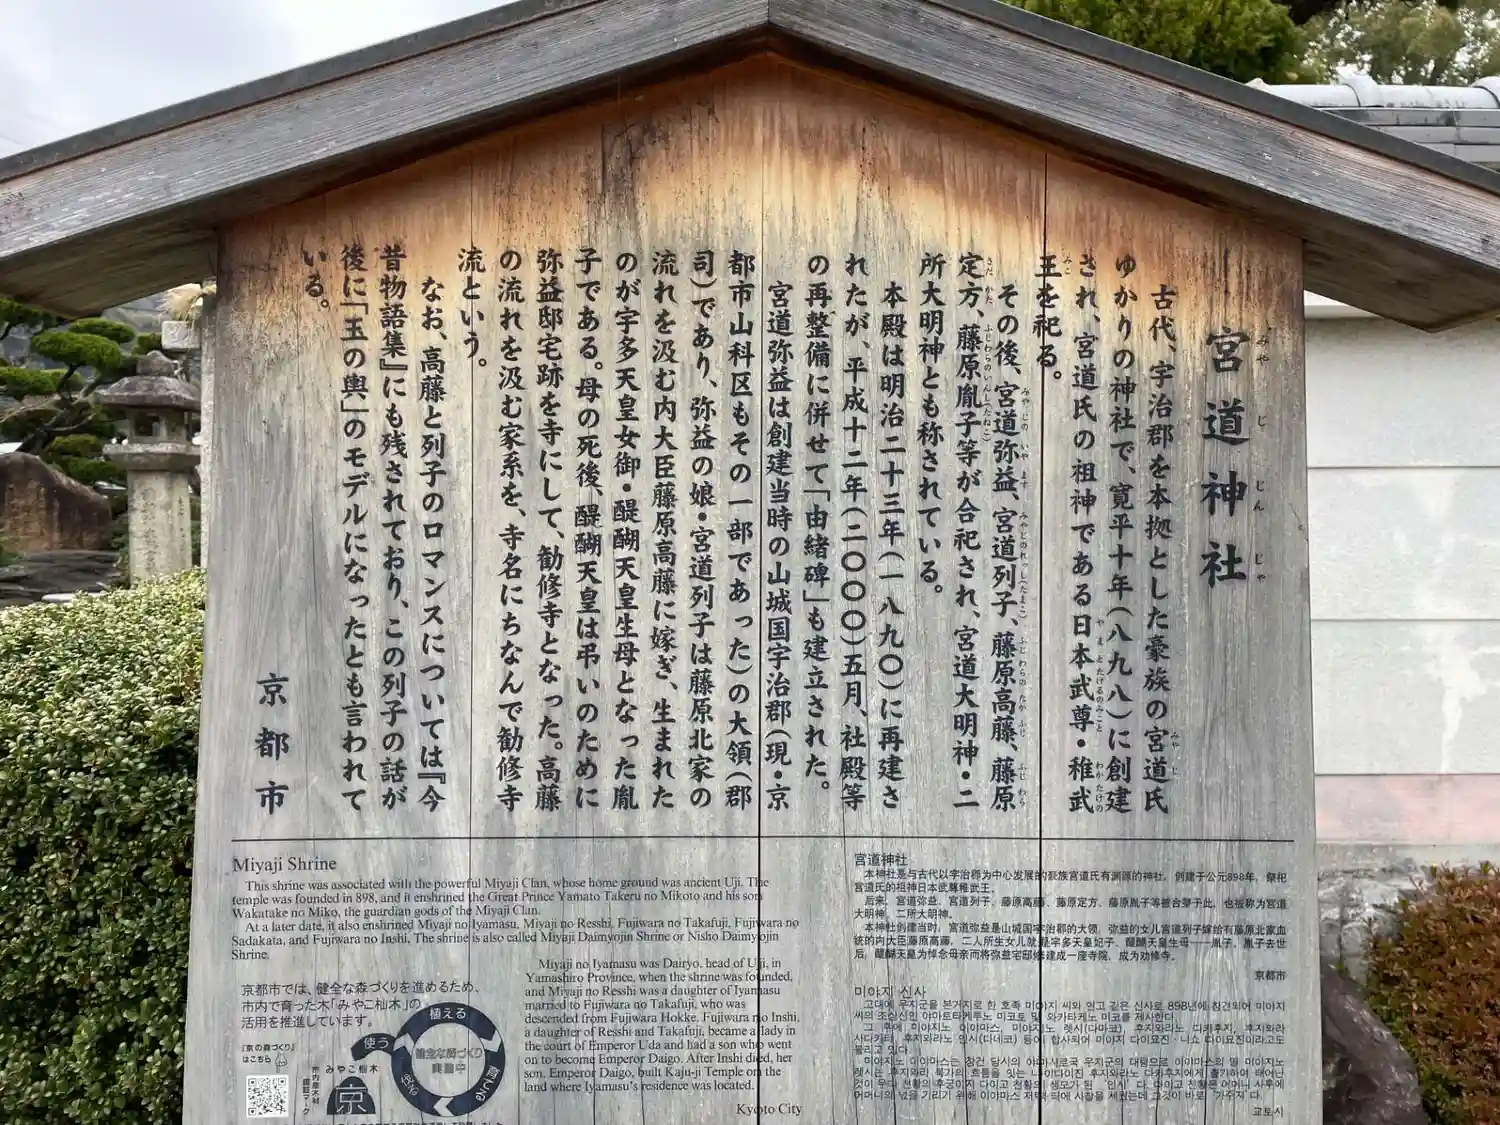 宮道神社
古代、宇治郡を本拠とした豪族の宮道氏
ゆかりの神社で、寛平十年(八九八)に創建
され、宮道氏の祖神である日本武尊・稚武
王を祀る。
その後、宮道弥益、宮道列子、藤原高藤、藤原
定方、藤原胤子等が合祀され、宮道大明神・二
所大明神とも称されている。
本殿は明治二十三年(一八九〇)に再建さ
れたが、平成十二年(二〇〇〇)五月、社殿等
の再整備に併せて「由緒碑」も建立された。
宮道弥益は創建当時の山城国宇治郡(現・京
都市山科区もその一部であった)の大領(郡
司)であり、弥益の娘・宮道列子は藤原北家の
流れを汲む内大臣藤原高藤に嫁ぎ、生まれた
のが宇多天皇女御・醍醐天皇生母となった胤
子である。母の死後、醍醐天皇は弔いのために
弥益邸宅跡を寺にして、勧修寺となった。高藤
の流れを汲む家系を、寺名にちなんで勧修寺
流という。
なお、高藤と列子のロマンスについては『今
昔物語集』にも残されており、この列子の話が
後に「玉の輿」のモデルになったとも言われて
いる。
京都市
Miyaji Shrine
This shrine was associated with the powerful Miyaji Clan, whose home ground was ancient Uji. The
temple was founded in 898, and it enshrined the Great Prince Yamato Takeru no Mikoto and his son
Wakatake no Miko, the guardian gods of the Miyaji Clan.
At a later date, it also enshrined Miyaji no Iyamasu, Miyaji no Resshi, Fujiwara no Takafuji, Fujiwara no
Sadakata, and Fujiwara no Inshi. The shrine is also called Miyaji Daimyojin Shrine or Nisho Daimyojin
Shrine.
Miyaji no Iyamasu was Dairyo, head of Uji, in
Yamashiro Province, when the shrine was founded,
and Miyaji no Resshi was a daughter of Iyamasu
married to Fujiwara no Takafuji, who was
descended from Fujiwara Hokke. Fujiwara no Inshi,
a daughter of Resshi and Takafuji, became a lady in
the court of Emperor Uda and had a son who went
on to become Emperor Daigo. After Inshi died, her
son, Emperor Daigo, built Kaju-ji Temple on the
land where Iyamasu's residence was located.
Kyoto City
京都市では、健全な森づくりを進めるため、
市内で育った木「みやこ杣木」の
活用を推進しています。
『京の森づくり』
はこちら
みやこ杣木
京
植える
使う
健全な森づくり
宮道神社
本神社是与古代以宇治郡为中心发展的豪族宫道氏有渊源的神社。创建于公元898年，祭祀
宫道氏的祖神日本武尊稚武王。
后来，宫道弥益、宫道列子、藤原高藤、藤原定方、藤原胤子等被合祭于此，也被称为宫道
大明神、二所大明神。
本神社创建当时，宫道弥益是山城国宇治郡的大领，弥益的女儿宫道列子嫁给有藤原北家血
统的内大臣藤原高藤，二人所生女儿就是宇多天皇妃子、醍醐天皇生母——胤子。胤子去世
后，醍醐天皇为悼念母亲而将弥益宅邸修建成一座寺院，成为劝修寺。
京都市
미야지 신사
교토시